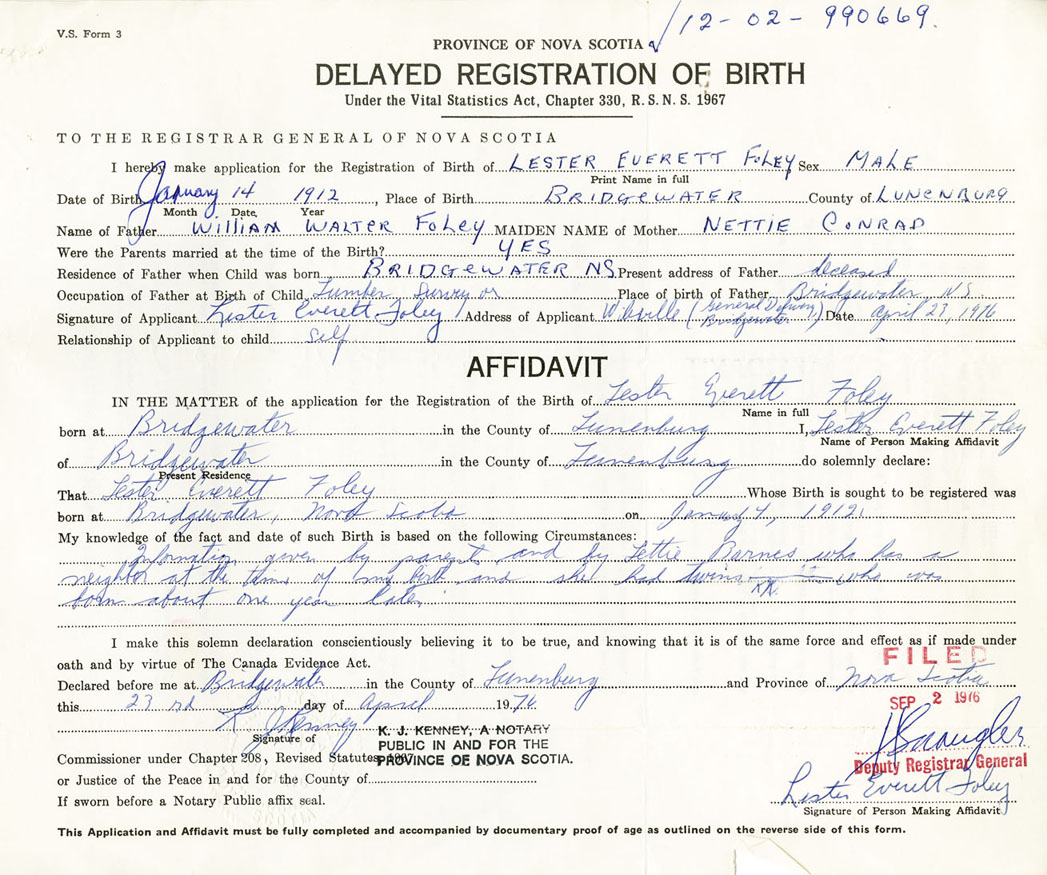 12-02-990669.
V.S. Form 3
PROVINCE OF NOVA SCOTIA
DELAYED REGISTRATION OF BIRTH
Under the Vital Statistics Act, Chapter 330, R.S.N.S. 1967
TO THE REGISTRAR GENERAL OF NOVA SCOTIA
I hereby make application for the Registration of Birth of LESTER EVERETT FOLEY Sex MALE
Print Name in full
Date of Birth January 14 1912, Place of Birth BRIDGEWATER County of LUNENBURG
Month Date, Year
Name of Father WILLIAM WALTER FOLEY MAIDEN NAME of Mother NETTIE CONRAD
Were the Parents married at the time of the Birth? YES
Residence of Father when Child was born BRIDGEWATER NS Present address of Father deceased
Occupation of Father at Birth of Child Lumber Survey or Place of birth of Father Bridgewater NS
Signature of Applicant Lester Everett Foley Address of Applicant Wileville (General Delivery Bridgewater) Date April 23, 1976
Relationship of Applicant to child self
AFFIDAVIT
IN THE MATTER of the application for the Registration of the Birth of Lester Everett Foley
Name in full
born at Bridgewater in the County of Lunenburg I, Lester Everett Foley
Name of Person Making Affidavit
of Bridgewater in the County of Lunenburg do solemnly declare:
Present Residence
That Lester Everett Foley Whose Birth is sought to be registered was
born at Bridgewater, Nova Scotia on 1912
My knowledge of the fact and date of such Birth is based on the following Circumstances:
Information given by parent and by Lettie Barnes who has a
neighbor at the time of my birth and she had twins who was
born about one year later
I make this solemn declaration conscientiously believing it to be true, and knowing that it is of the same force and effect as if made under
oath and by virtue of The Canada Evidence Act.
FILED
Declared before me at Bridgewater in the County of Lunenburg and Province of Nova Scotia
this 23rd day of April 1976
SEP 2 1976
K J Kenney
Signature of
K. J. KENNEY, A NOTARY
PUBLIC IN AND FOR THE
PROVINCE OF NOVA SCOTIA.
Commissioner under Chapter 208, Revised Statutes
Deputy Registrar General
or Justice of the Peace in and for the County of
Lester Everett Foley
If sworn before a Notary Public affix seal.
Signature of Person Making Affidavit
This Application and Affidavit must be fully completed and accompanied by documentary proof of age as outlined on the reverse side of this form.